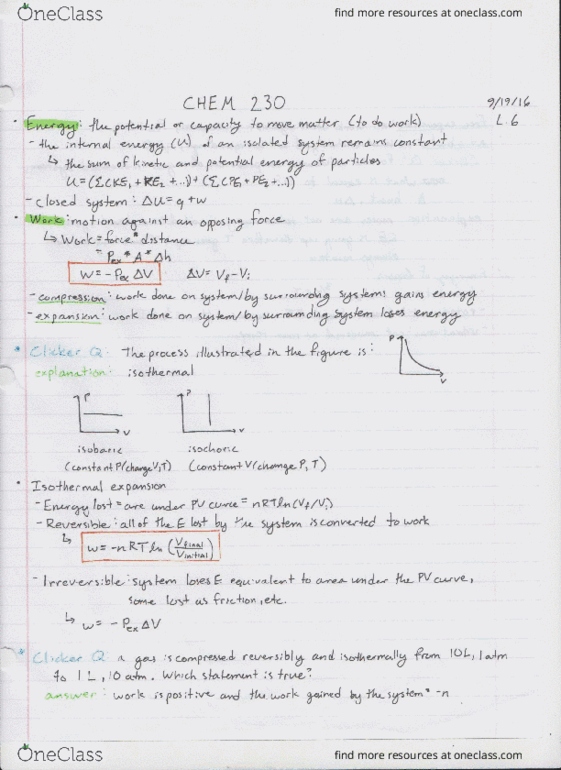 OneClass find more resources at oneclass.com
CHEM 230 9/19/16
• Energy: the potential or capacity to move matter (to do work) L.6
- the internal energy (U) of an isolated system remains constant
↳ the sum of kinetic and potential energy of particles
U = (ΣCKE₁ + KE₂ + ...) + (ΣCPE₁ + PE₂ + ...))
- closed system: ΔU = q + w
• Work: motion against an opposing force
↳ Work = force * distance
= Pex * A * Δh
W = -Pex ΔV ΔV = Vf - Vi
- compression: work done on system/by surrounding system: gains energy
- expansion: work done on system/by surrounding system loses energy
* Clicker Q: The process illustrated in the figure is: P V
explanation: isothermal
P V P V
isobaric isochoric
(constant P (change V, T) (constant V (change P, T)
• Isothermal expansion
- Energy lost = are under PV curve = nRT ln (Vf/Vi)
- Reversible: all of the E lost by the system is converted to work
↳ w = -nRT ln (Vfinal/Vinitial)
- Irreversible: system loses E equivalent to area under the PV curve,
some lost as friction, etc.
↳ w = -Pex ΔV
* Clicker Q: a gas is compressed reversibly and isothermally from 10L, 1 atm
to 1 L, 10 atm. Which statement is true?
answer: work is positive and the work gained by the system = -n
OneClass find more resources at oneclass.com